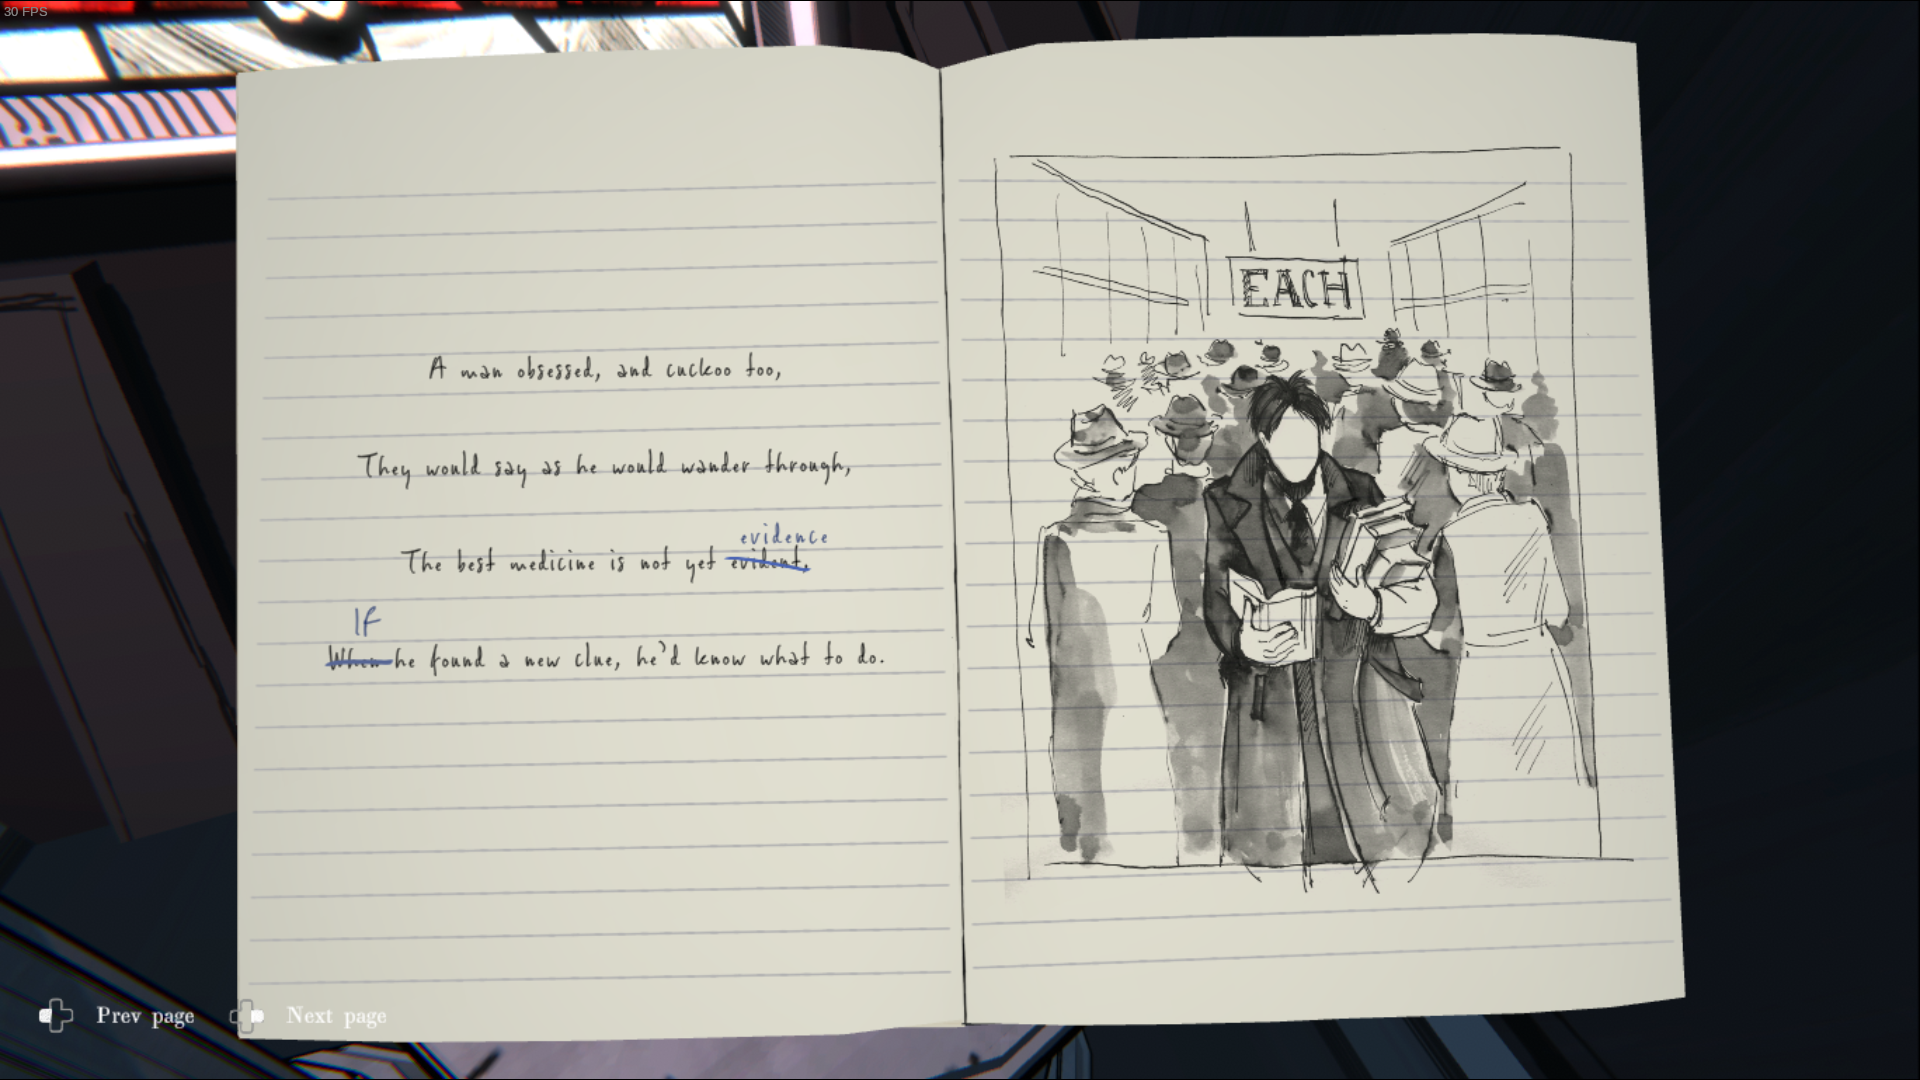 30 FPS
A man obsessed, and cuckoo too,
They would say as he would wander through,
evidence
The best medicine is not yet evident.
If
When he found a new clue, he'd know what to do.
EACH
Prev page
Next page